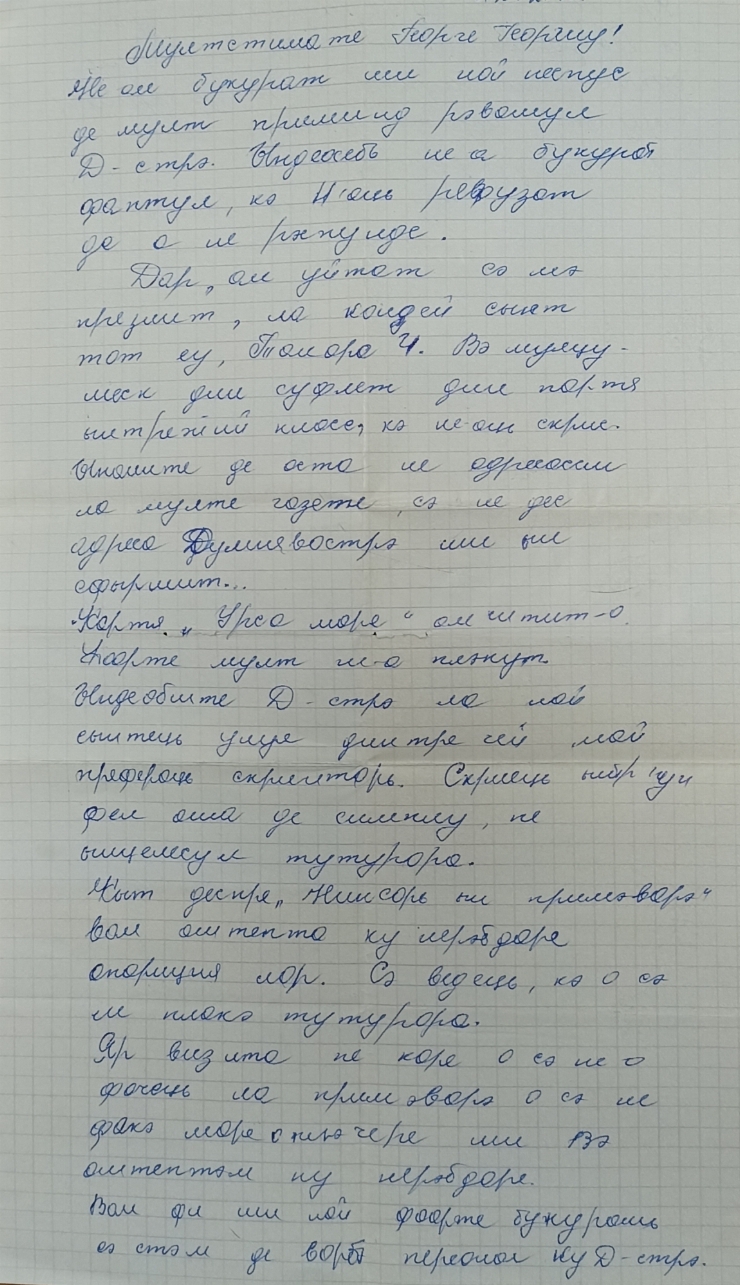 Мултстимате Георге Георгиу!
Не ам букурат ши ной неспус
де мулт приминд рэвашул
Д-стрэ. Ындеосебь не а букурат
фаптул, кэ н'аць рефузат
де а не рэспунде.
Дар, ам уйтат сэ мэ
презинт, ла кондей сынт
тот еу, Тамара Ч. Вэ мулцу-
меск дин суфлет дин партя
ынтрежий класе, кэ не-ць скрис.
Ынаинте де аста не адресасем
ла мулте газете, сэ не дее
адреса Думнявоастрэ ши ын
сфыршит...
Картя „Урса маре" ам читит-о.
Фоарте мулт не-а плэкут.
Ындеобште Д-стрэ ла ной
сынтець унул динтре чей май
prefераць скрииторь. Скриець ынтр'ун
фел аша де симплу, пе
ынцелесул тутурора.
Кыт деспре „Нинсорь ын примэварэ"
вом аштепта ку нерэбдаре
апариция лор. Сэ ведець, кэ о сэ
ле плакэ тутурора.
Яр визита пе каре о сэ не-о
фачець ла примэварэ о сэ не
факэ маре плэчере ши Вэ
аштептэм ку нерэбдаре.
Вом фи ши ной фоарте букурошь
сэ стэм де ворбэ персонал ку Д-стрэ.